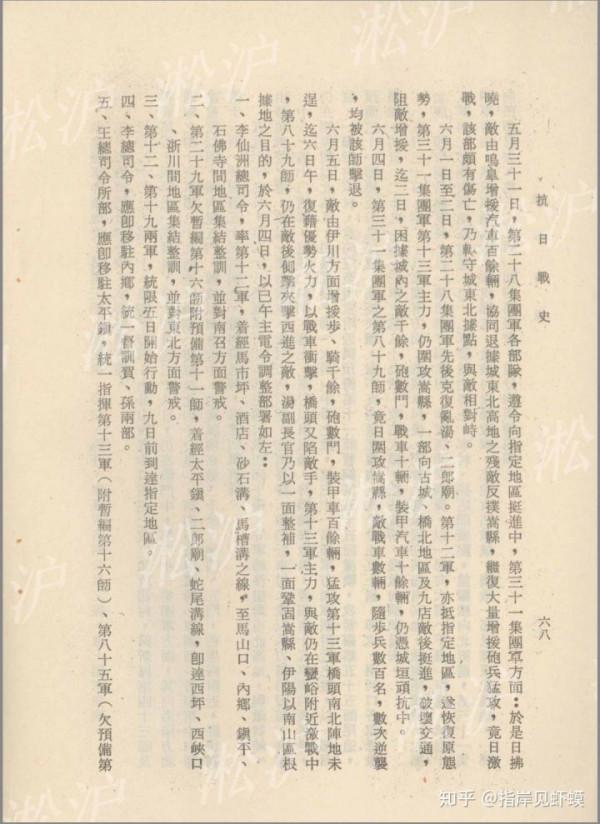 抗日戰史
六八
五月三十一日，第二十八集團軍各部隊，遵令向指定地區挺進中，第三十一集團軍方面：於是日拂
曉，敵由鳴皐增援汽車百餘輛，協同退據城東北高地之殘敵反撲嵩縣，繼復大量增援砲兵猛攻，竟日激
戰，該部頗有傷亡，乃転守城東北據點，與敵相對峙。
六月一日至二日，第二十八集團軍先後克復亂湯、二郎廟。第十二軍，亦抵指定地區，遂恢復原態
勢，第三十一集團軍第十三軍主力，仍圍攻嵩縣，一部向古城、橋北地區及九店敵後挺進，破壞交通，
阻敵增援，迄三日，困據城內之敵千餘，砲數門，戰車十輛，裝甲汽車十餘輛，仍憑城垣頑抗中。
六月四日，第三十一集團軍之第八十九師，竟日圍攻嵩縣，敵戰車數輛，隨步兵數百名，數次逆襲
，均被該師擊退。
六月五日，敵由伊川方面增援步、騎千餘，砲數門，裝甲車百餘輛，猛攻第十三軍橋頭南北陣地未
逞，迄六日午，復藉優勢火力，以戰車衝擊，橋頭又陷敵手，第十三軍主力，與敵仍在欒峪附近激戰中
，第八十九師，仍在敵後側擊夾擊西進之敵，湯副長官乃以一面整補，一面鞏固嵩縣、伊陽以南山區根
據地之目的，於六月四日，以巳午主電令調整部署如左：
一、李仙洲總司令，率第十二軍，着經馬市坪、酒店、砂石溝、馬槽溝之線，至馬山口、內鄉、鎮平、
石佛寺間地區集結整訓，並對南召方面警戒。
二、第二十九軍欠暫編第十六師附預備第十一師，着經太平鎮、二郎廟、蛇尾溝線，卽達西坪、西峽口
、淅川間地區集結整訓，並對東北方面警戒。
三、第十二、第十九兩軍，統限五日開始行動，九日前到達指定地區。
四、李總司令，應卽移駐內鄉，統一督訓賀、孫兩部。
五、王總司令所部，應卽移駐太平鎮，統一指揮第十三軍（附暫編第十六師）、第八十五軍（欠預備第
淞沪
知乎 @指岸见虾蟆